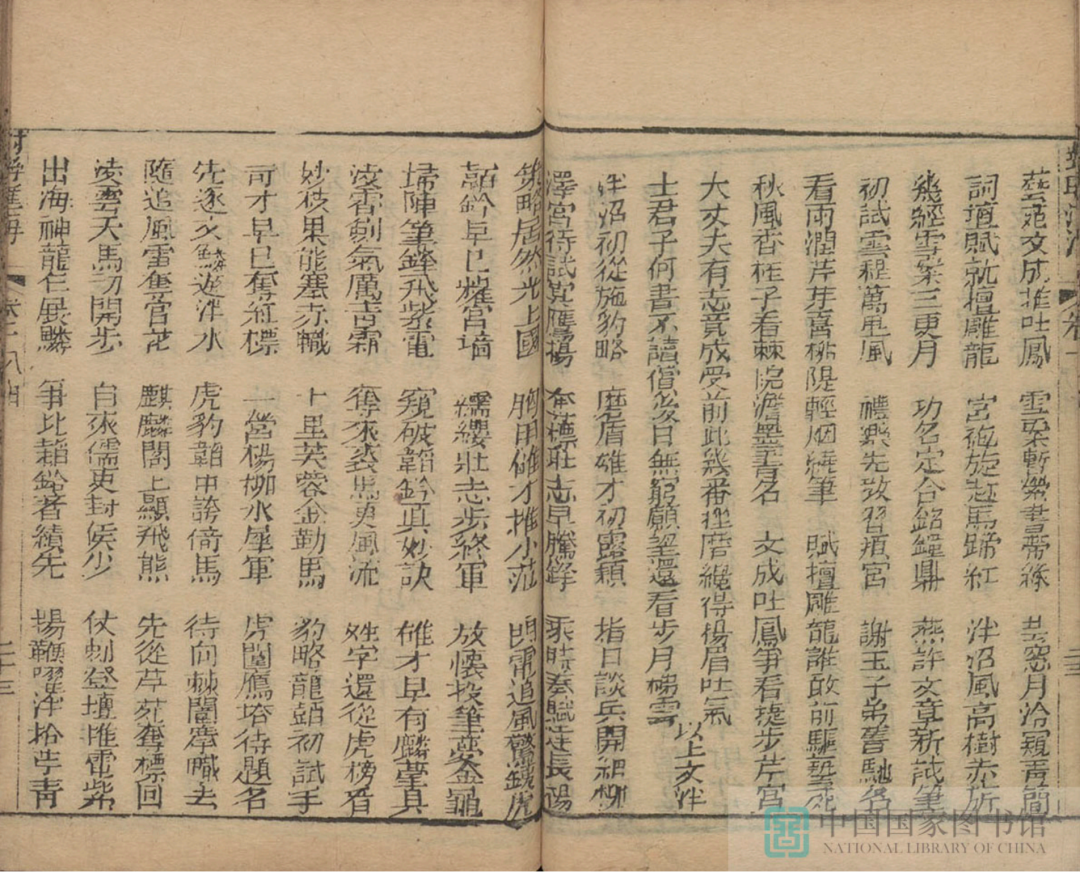 藝苑文成推吐鳳 雲梁暫築書帶綠 芸窓月冷窺青簡
詞壇賦就擅雕龍 宮袍旋赴馬蹄紅 泮沼風高樹赤旂
幾經雪案三更月 功名定合銘鐘鼎 燕許文章新試筆
初試雲程萬里風 禮樂先敦習頖宮 謝玉子弟舊馳名
看雨潤芹芽喜桃隄輕烟繞筆 賦壇雕龍誰敢前驅奪
秋風香桂子看棘院澹墨書名 文成吐鳳爭看捷步芹宮
大丈夫有志竟成受前此幾番挫磨纔得揚眉吐氣
士君子何書不讀償後日無窮願望還看步月梯雲 以上文泮
泮沼初從施豹略 磨盾雄才初露穎 指日談兵開細柳
澤宮待試賞鷹揚 奪標壯志早騰鋒 乘時奏賦走長楊
策略居然光上國 胸用雄才推小范 明電追風驚鉞虎
韜鈐早已耀宮墻 繻纓壯志步終軍 放懷投筆愛金龜
埽陣筆鋒飛紫電 窺破韜鈐真妙訣 雄才早有麟臺真
凌香劍氣厲青霜 奪來裘馬更風流 姓字還從虎榜看
妙技果能塞赤幟 十里芙蓉金勒馬 豹略龍韜初試手
奇才早已奪紅標 一營楊柳水犀軍 虎闈鷹塔待題名
先逐久鱗遊泮水 虎豹韜中誇倚馬 待向棘闈搴幟去
隨追風雷 麒麟閣上顯飛熊 先從芹苑奪標回
凌雲天馬初開步 自來儒吏封侯少 仗劍登壇推電紫
出海神龍乍展麟 爭比韜鈐著績先 揚鞭躍泮拾芹青
中国国家图书馆
NATIONAL LIBRARY OF CHINA